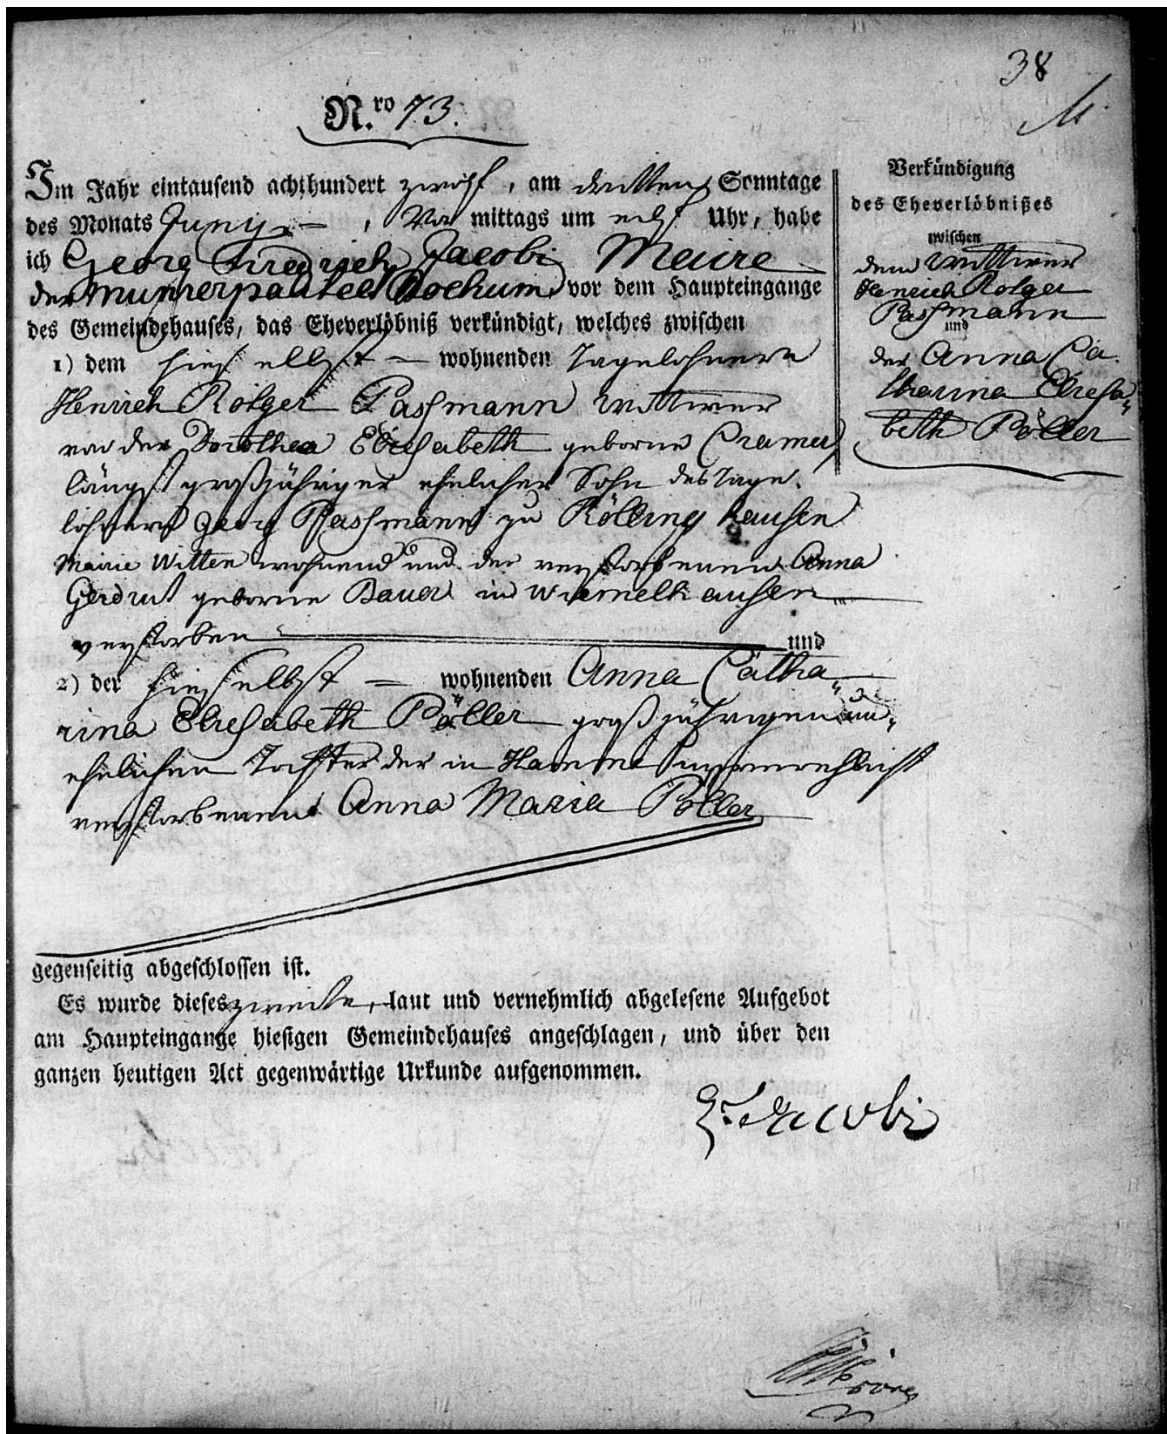 38
N.ro 73.
Im Jahr eintausend achthundert zwölf, am dritten Sonntage
des Monats Juny, Vor mittags um eilf Uhr, habe
ich Georg Friedrich Jacobi Maire
der Munizipalitaet Bochum, vor dem Haupteingange
des Gemeindehauses, das Eheverlöbniß verkündigt, welches zwischen
1) dem hieselbst — wohnenden Tagelohnere
Henrich Rötger Passmann Wittwer
von der Dorothea Elisabeth geborne Cramer,
längst großjähriger ehelicher Sohn des Tage-
löhners Georg Passmann zu Röllinghausen
Mairie Witten wohnend und der verstorbenen Anna
Gerdrut geborne Bauer in Wiemelhausen
verstorben und
2) der hieselbst — wohnenden Anna Catha
rina Elisabeth Pöller großjährigen un-
ehelichen Tochter der in Hamme
verstorbenen Anna Maria Pöller
gegenseitig abgeschlossen ist.
Es wurde dieses zweite, laut und vernehmlich abgelesene Aufgebot
am Haupteingange hiesigen Gemeindehauses angeschlagen, und über den
ganzen heutigen Act gegenwärtige Urkunde aufgenommen.
Jacobi
Verkündigung
des Eheverlöbnißes
zwischen
dem Wittwer
Henrich Rötger
Passmann
und
der Anna Ca-
tharina Elisa-
beth Pöller